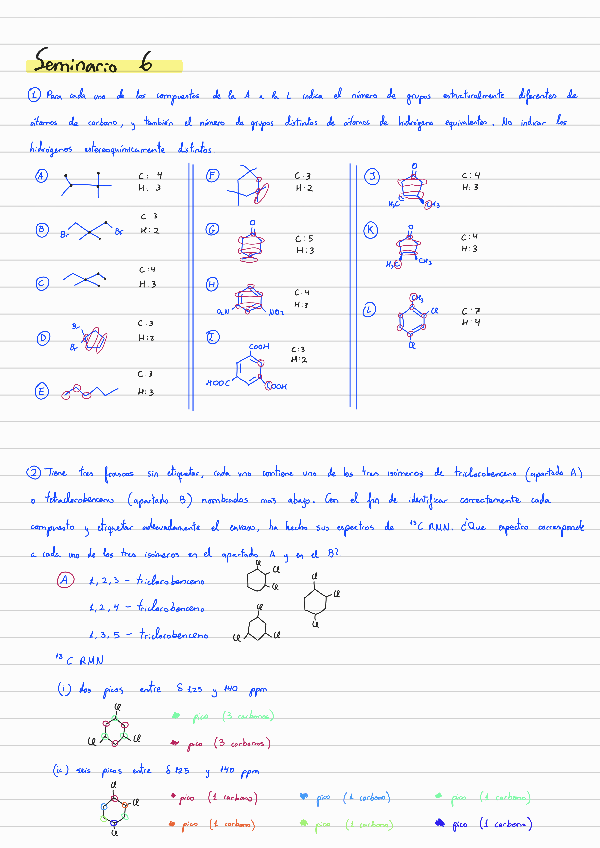 Seminario 6
① Para cada uno de los compuestos de la A a la L indica el número de grupos estructuralmente diferentes de
átomos de carbono, y también el número de grupos distintos de átomos de hidrógeno equivalentes. No indicar los
hidrógenos estereoquímicamente distintos
A C: 4
H: 3
B Br Br C 3
H: 2
C C:4
H: 3
D Br Br C.3
H:3
E C 3
H:3
F C.3
H:2
G O C:5
H:3
H O₂N NO₂ C.4
H.3
I COOH HOOC COOH C:3
H:2
J O H₃C CH₃ C:4
H:3
K O H₃C CH₃ C:4
H:3
L CH₃ Cl Cl C:7
H:4
② Tiene tres frascos sin etiquetar, cada uno contiene uno de los tres isómeros de triclorobenceno (apartado A)
o tetraclorobenceno (apartado B) nombrados mas abajo. Con el fin de identificar correctamente cada
compuesto y etiquetar adecuadamente el envase, ha hecho sus espectros de ¹³C RMN. ¿Que espectro corresponde
a cada uno de los tres isómeros en el apartado A y en el B?
A 1,2,3 - triclorobenceno Cl Cl Cl
1,2,4 - triclorobenceno Cl Cl Cl
1,3,5 - triclorobenceno Cl Cl Cl
¹³C RMN
(i) dos picos entre δ 125 y 140 ppm
Cl Cl Cl pico (3 carbonos)
pico (3 carbonos)
(ii) seis picos entre δ 125 y 140 ppm
Cl Cl Cl pico (1 carbono) pico (1 carbono) pico (1 carbono)
pico (1 carbono) pico (1 carbono) pico (1 carbono)